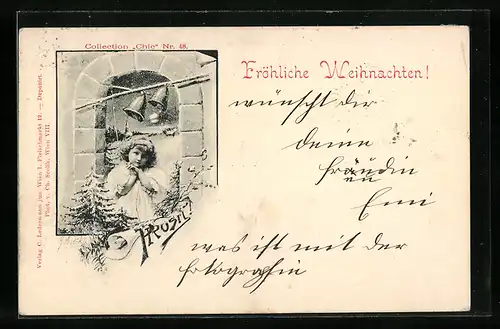 Collection „Chic" Nr. 48.
Fröhliche Weihnachten!
wünscht dir
deine
fräudin
en
Emi
was ist mit der
fotografin
Prosit
Verlag C. Ledermann jun. Wien I. Fleischmarkt 12. — Deponirt.
Phot. v. Ch. Scolik, Wien VIII